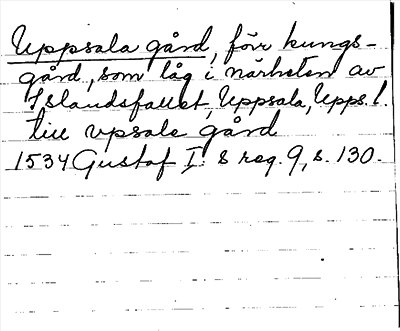 Uppsala gård, förr kungs-
gård, som låg i närheten av
Islandsfallet, Uppsala, Upps. l.
till vpsale gård
1534 Gustaf I:s reg. 9, s. 130.